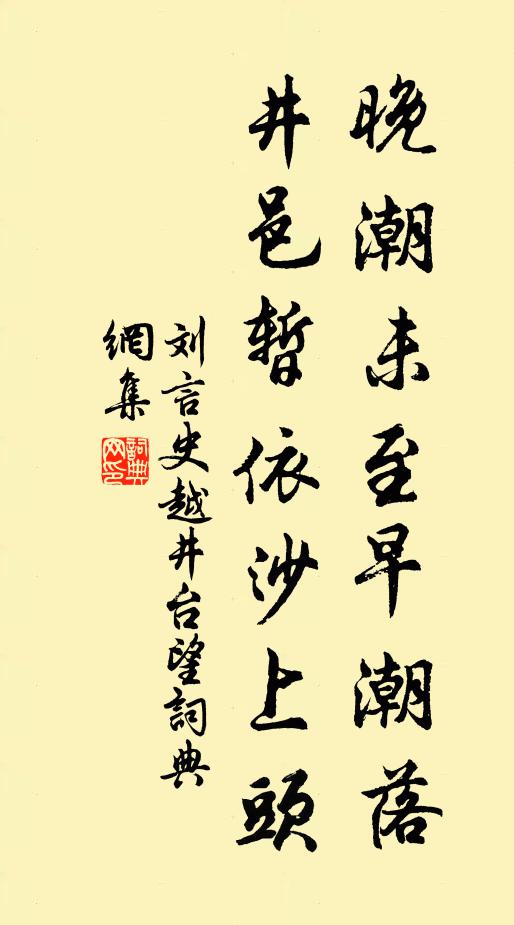 晚潮未至早潮落
井邑暫依沙上頭
刘言史越井台望詞典
網集
詞典
网印